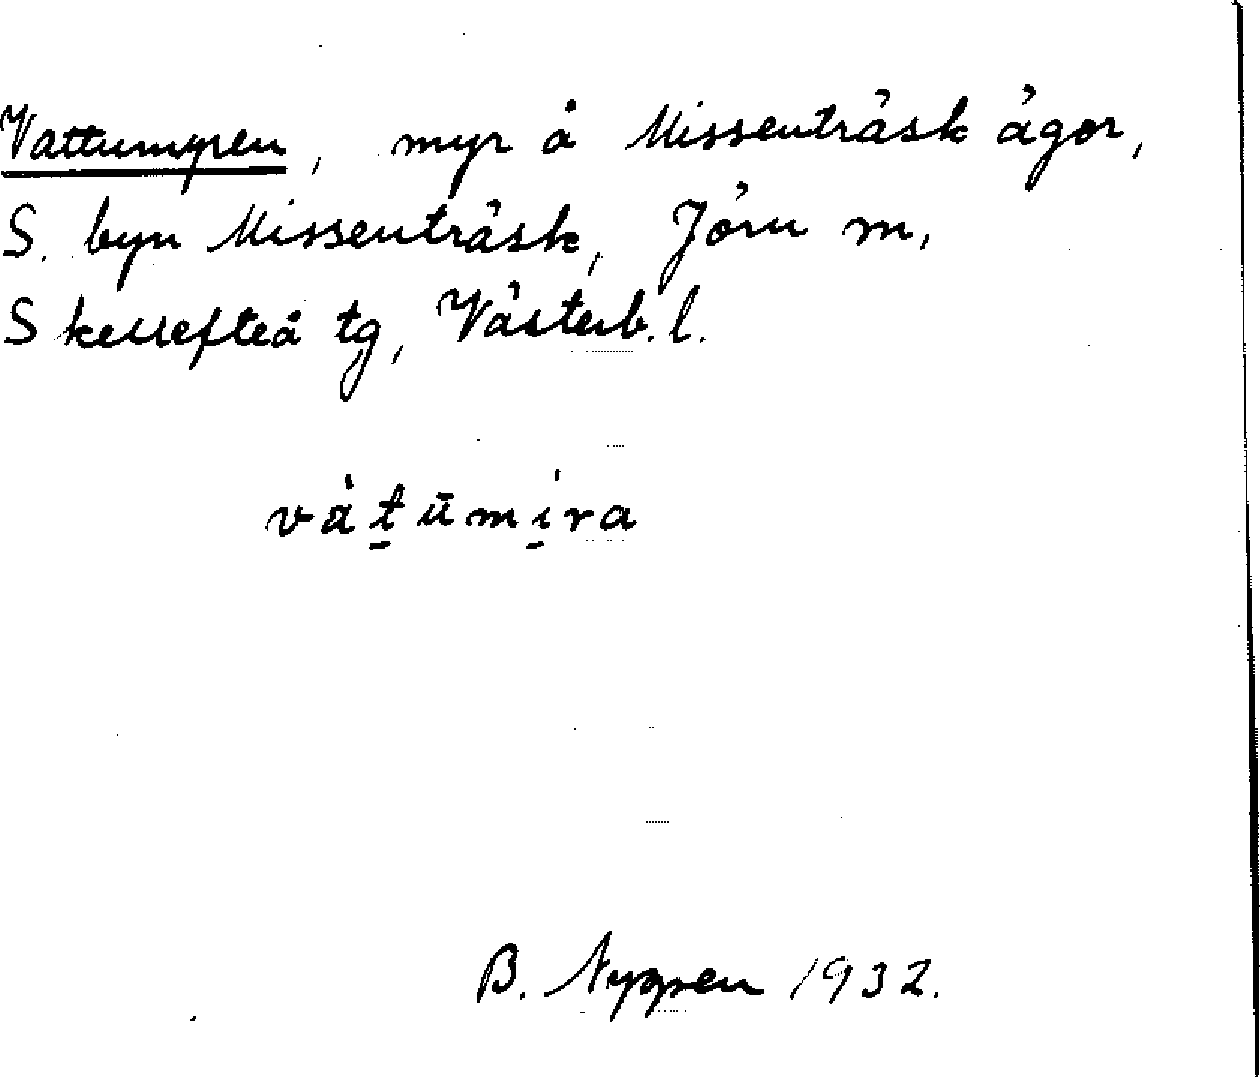 Vattumyren, myr å Missenträsk ägor,
S. byn Missenträsk, Jörn m,
Skellefteå tg, Västerb. l.
vàt̠ūmi̠ra
B. 1932.